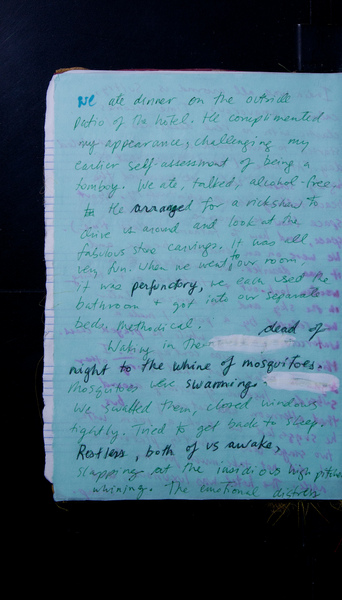 We ate dinner on the outside
patio of the hotel. He complimented
my appearance, challenging my
earlier self-assessment of being a
tomboy. We ate, talked, alcohol-free.
He arranged for a rickshaw to
drive us around and look at the
fabulous stone carvings. It was all
very fun. When we went to our room,
it was perfunctory, we each used the
bathroom + got into our separate
beds. Methodical.
Waking in the dead of
night to the whine of mosquitoes.
Mosquitoes were swarming.
We swatted them, closed windows
tightly. Tried to get back to sleep.
Restless, both of us awake,
slapping at the insidious high pitched
whining. The emotional distress